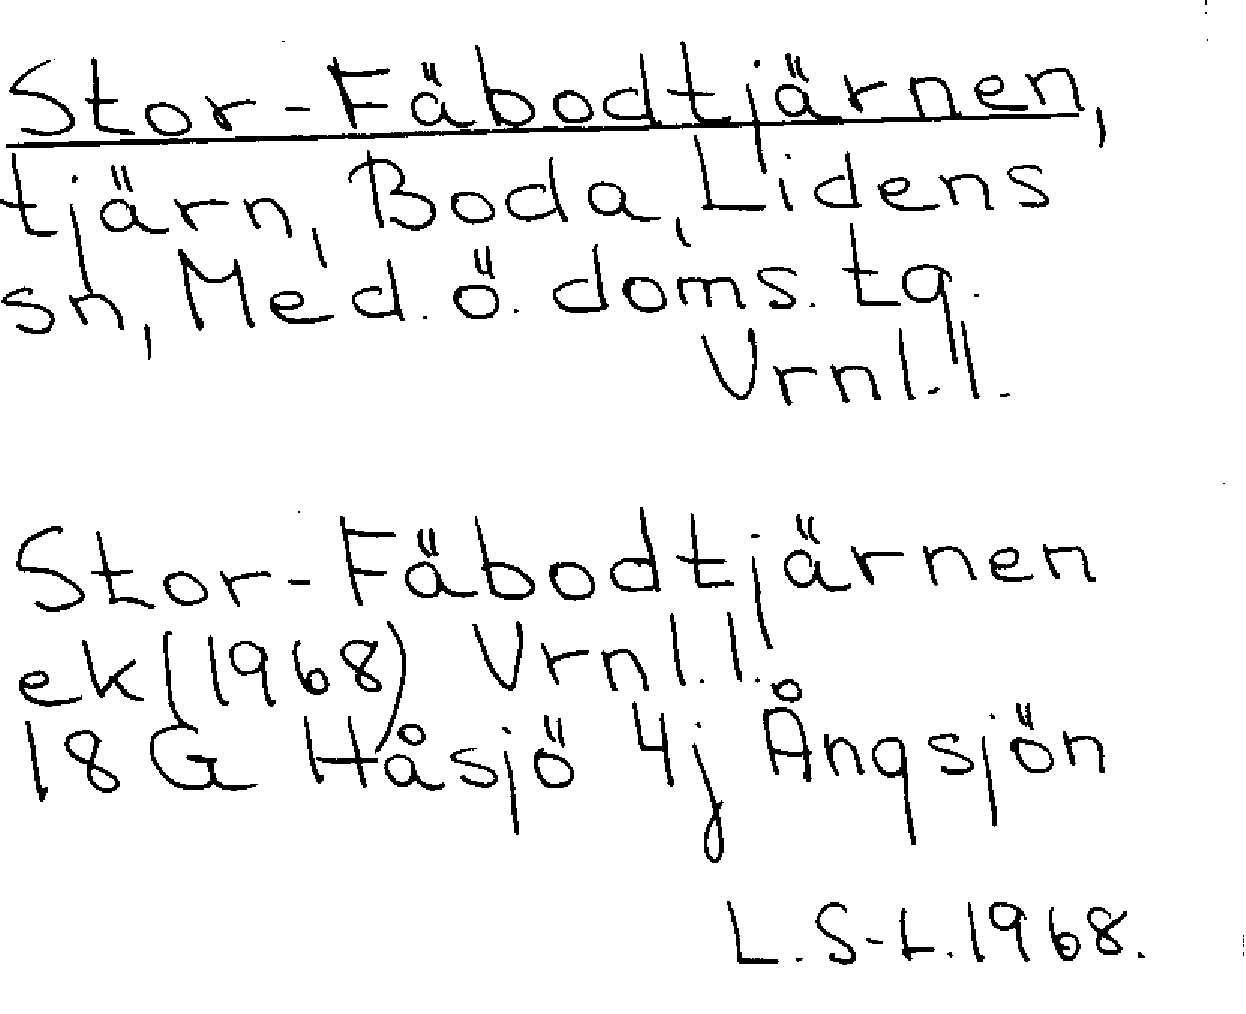 Stor-Fäbodtjärnen,
tjärn, Boda, Lidens
sn, Med. ö. doms. tg.
Vrnl. l.
Stor-Fäbodtjärnen
ek (1968) Vrnl. l.
18 G Håsjö 4j Ångsjön
L. S-L. 1968.